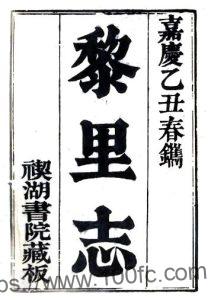 嘉慶乙丑春鐫
黎里志
禊湖書院藏板
https://www.100fc.com